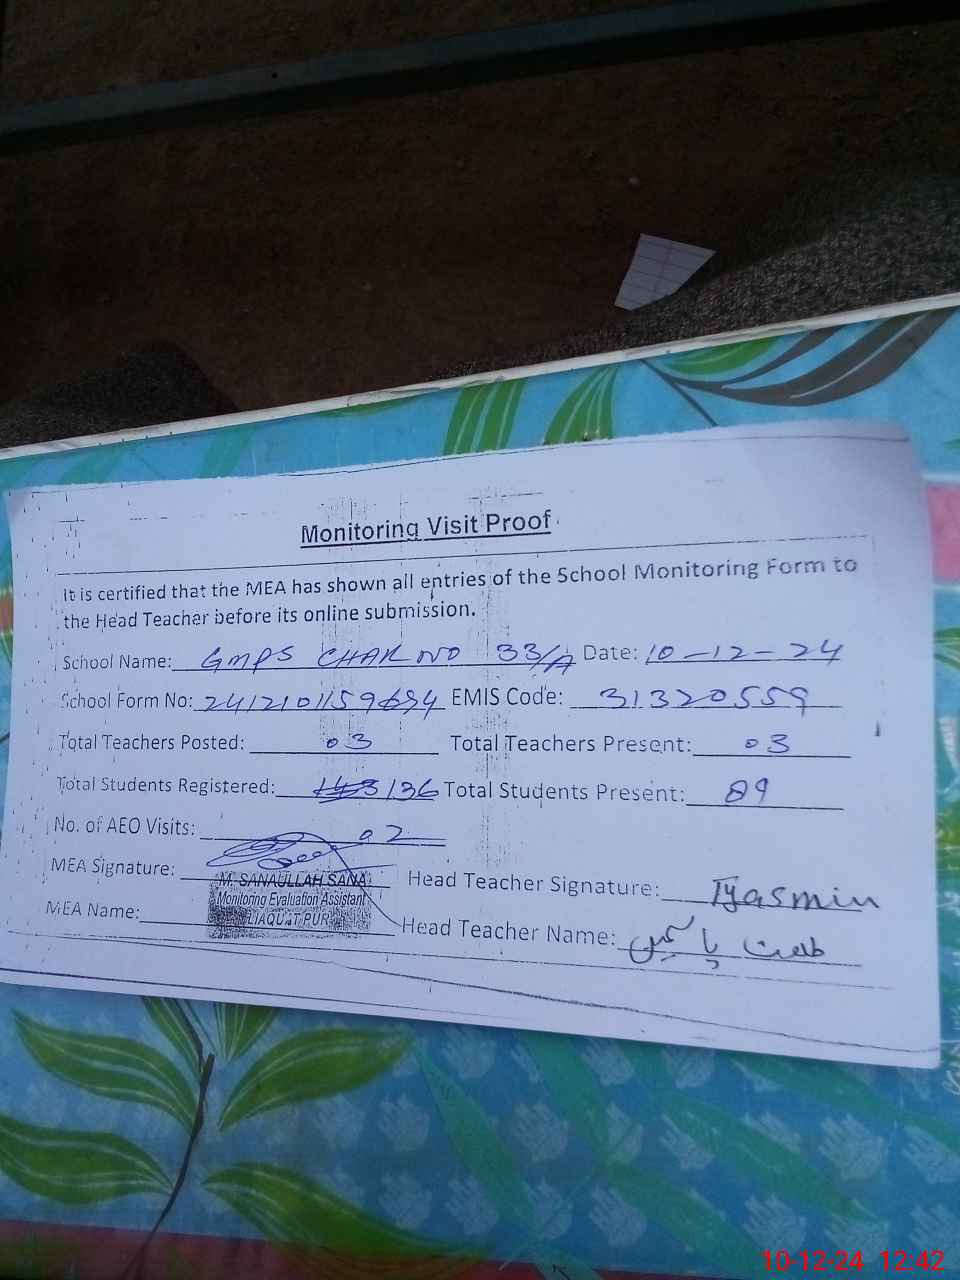 Monitoring Visit Proof
It is certified that the MEA has shown all entries of the School Monitoring Form to
the Head Teacher before its online submission.
School Name: GMPS CHAK NO 33/A Date: 10-12-24
School Form No: 2412101159694 EMIS Code: 31320559
Total Teachers Posted: 03 Total Teachers Present: 03
Total Students Registered: 136 Total Students Present: 89
No. of AEO Visits: 02
MEA Signature: Head Teacher Signature: Tyasmin
M. SANAULLAH SANA
Monitoring Evaluation Assistant
LIAQUAT PUR
MEA Name: Head Teacher Name: طلعت یاسمین
10-12-24 12:42